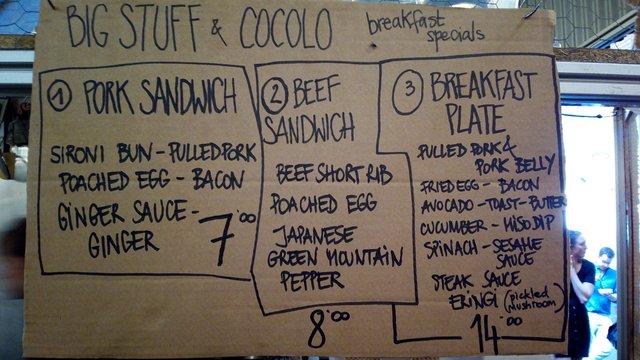 BIG STUFF & COCOLO breakfast specials
1 PORK SANDWICH
SIRONI BUN - PULLED PORK
POACHED EGG - BACON
GINGER SAUCE -
GINGER
7.00
2 BEEF
SANDWICH
BEEF SHORT RIB
POACHED EGG
JAPANESE
GREEN MOUNTAIN
PEPPER
8.00
3 BREAKFAST
PLATE
PULLED PORK &
PORK BELLY
FRIED EGG - BACON
AVOCADO - TOAST - BUTTER
CUCUMBER - MISO DIP
SPINACH - SESAME
SAUCE
STEAK SAUCE
ERINGI (pickled mushroom)
14.00